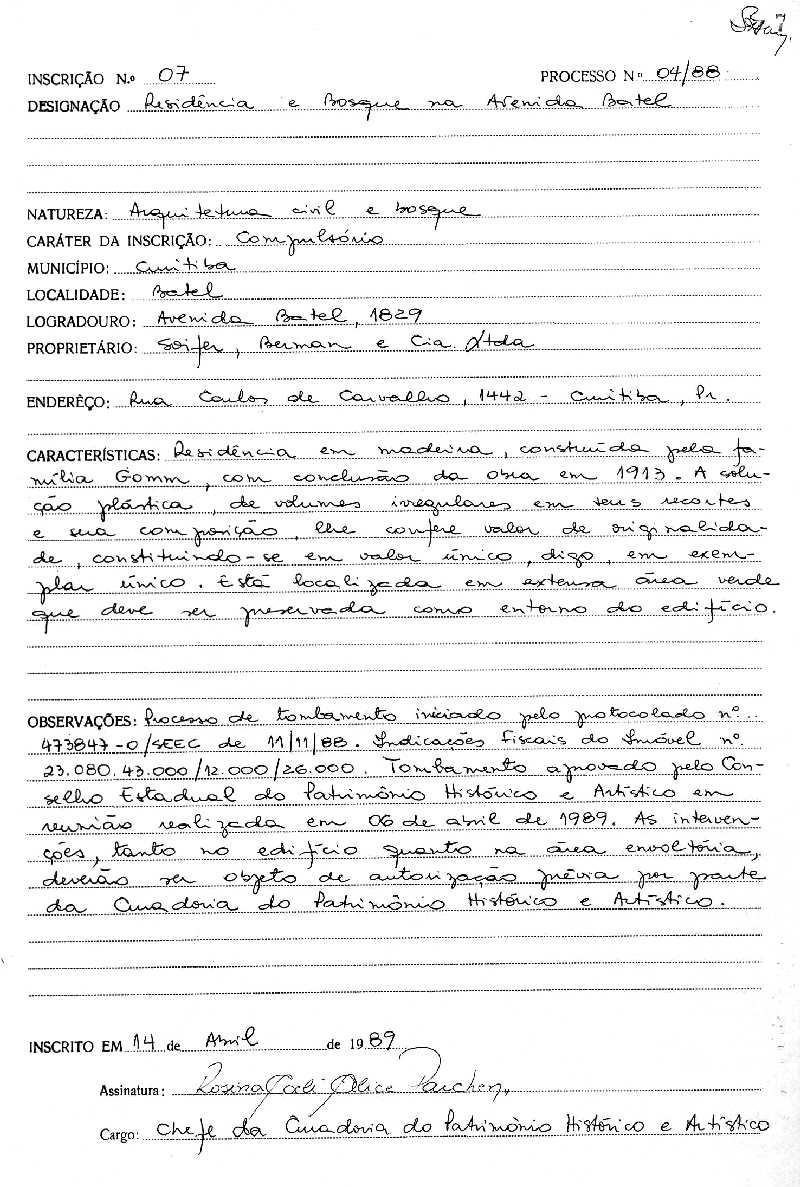 INSCRIÇÃO N.º 07 PROCESSO Nº 04/88
DESIGNAÇÃO Residência e Bosque na Avenida Batel
NATUREZA: Arquitetura civil e bosque
CARÁTER DA INSCRIÇÃO: Compulsório
MUNICÍPIO: Curitiba
LOCALIDADE: Batel
LOGRADOURO: Avenida Batel, 1829
PROPRIETÁRIO: Soifer, Berman e Cia. Ltda
ENDERÊÇO: Rua Carlos de Carvalho, 1442 - Curitiba, Pr.
CARACTERÍSTICAS: Residência em madeira, construída pela fa-
mília Gomm, com conclusão da obra em 1913. A solu-
ção plástica, de volumes irregulares em seus recortes
e sua composição, lhe confere valor de originalida-
de, constituindo-se em valor único, digo, em exem-
plar único. Está localizada em extensa área verde
que deve ser preservada como entorno do edifício.
OBSERVAÇÕES: Processo de tombamento iniciado pelo protocolado nº
473847-0/SEEC de 11/11/88. Indicações Fiscais do Imóvel nº
23.080.43.000/12.000/26.000. Tombamento aprovado pelo Con-
selho Estadual do Patrimônio Histórico e Artístico em
reunião realizada em 06 de abril de 1989. As interven-
ções, tanto no edifício quanto na área envoltória,
deverão ser objeto de autorização prévia por parte
da Curadoria do Patrimônio Histórico e Artístico.
INSCRITO EM 14 de Abril de 1989
Assinatura: Rosina Alice Parchen
Cargo: Chefe da Curadoria do Patrimônio Histórico e Artístico